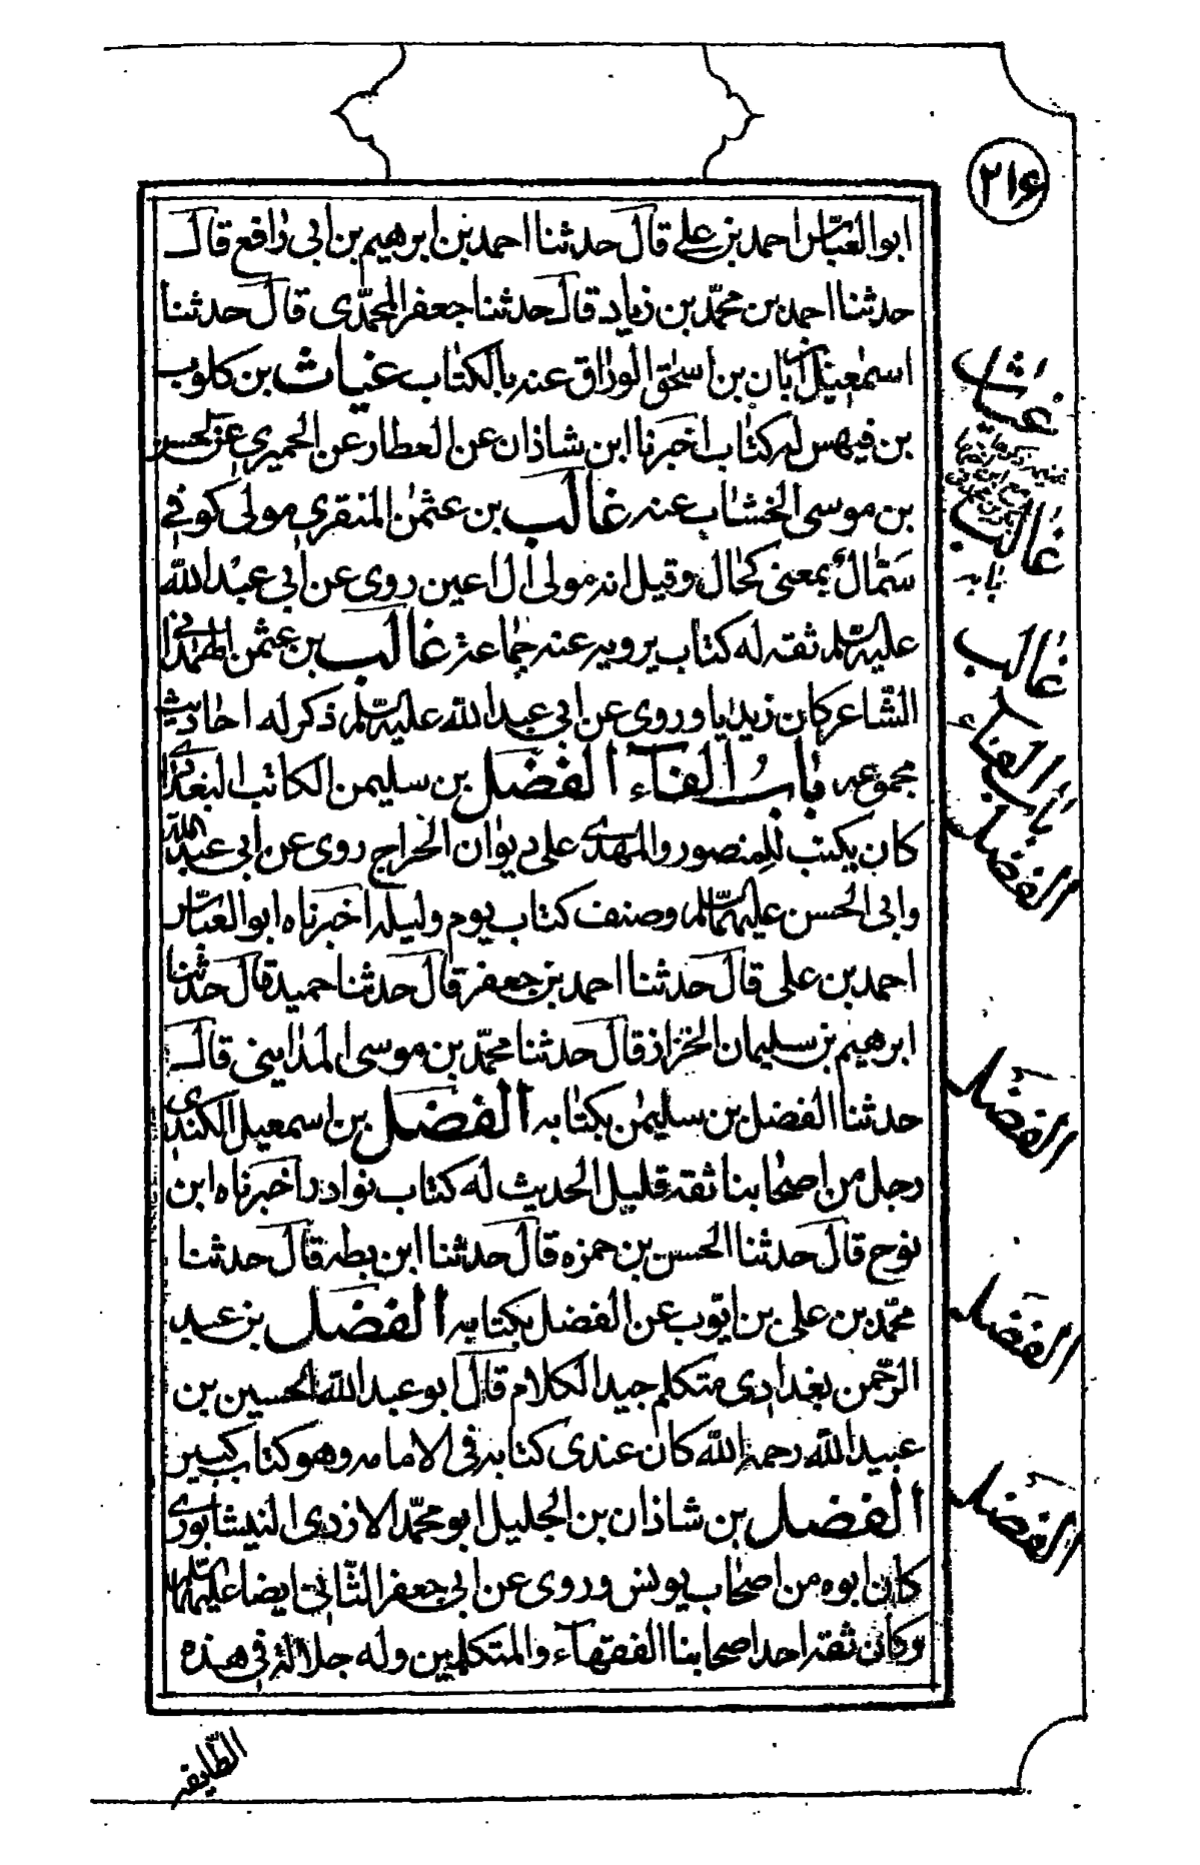 ٢١۶
ابوالعبّاس احمد بن علی قال حدثنا احمد بن ابرهیم بن ابی رافع قال
حدثنا احمد بن محمّد بن زیاد قال حدثنا جعفر المحمّدی قال حدثنا
اسمعیل بن ابان بن اسحق الورّاق عنه بالکتاب غیاث بن کلوب
بن فیهس له کتاب اخبرنا ابن شاذان عن العطار عن الحمیری عن الحسن
بن موسی الخشاب عنه غالب بن عثمن المنقری مولی کوفی
سمّال بمعنی کحال وقیل انه مولی ال اعین روی عن ابی عبد الله
علیه السّلم ثقه له کتاب یرویه عنه جماعة غالب بن عثمن الهمدانی
الشّاعر کان زیدیا وروی عن ابی عبد الله علیه السّلم ذکر له احادیث
مجموعه باب الفاء الفضل بن سلیمن الکاتب البغدادی
کان یکتب للمنصور والمهدی علی دیوان الخراج روی عن ابی عبد الله
وابی الحسن علیهما السّلم وصنف کتاب یوم ولیله اخبرناه ابوالعبّاس
احمد بن علی قال حدثنا احمد بن جعفر قال حدثنا حمید قال حدثنا
ابرهیم بن سلیمان الخزاز قال حدثنا محمّد بن موسی المداینی قال
حدثنا الفضل بن سلیمن بکتابه الفضل بن اسمعیل الکندی
رجل من اصحابنا ثقه قلیل الحدیث له کتاب نوادر اخبرناه ابن
نوح قال حدثنا الحسن بن حمزه قال حدثنا ابن بطه قال حدثنا
محمّد بن علی بن ایّوب عن الفضل بکتابه الفضل بن عبد
الرّحمن بغدادی متکلم جید الکلام قال ابو عبد الله الحسین بن
عبید الله رحمه الله کان عندی کتابه فی الامامه وهو کتاب کبیر
الفضل بن شاذان بن الجلیل ابو محمّد الازدی النیشابوری
کان ابوه من اصحاب یونس وروی عن ابی جعفر الثّانی ایضا علیهما السّلم
وکان ثقه احد اصحابنا الفقهاء والمتکلمین وله جلالة فی هذه
الطّایفه
غیاث
غالب
غالب
باب الفاء
الفضل
الفضل
الفضل
الفضل